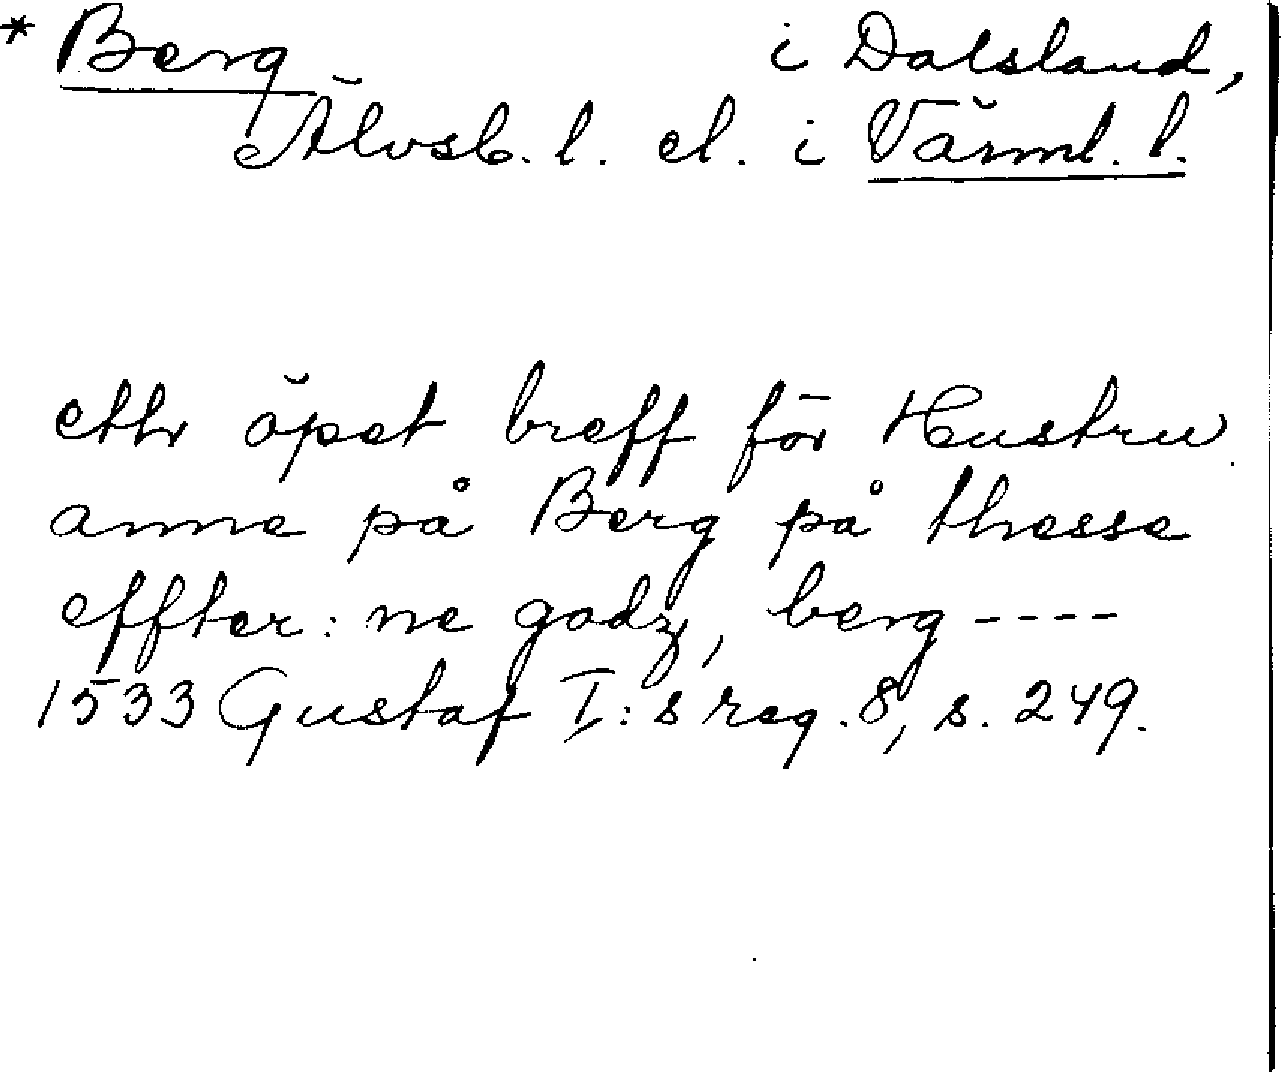 * Berg i Dalsland,
Älvsb. l. el. i Värml. l.
etth öpet breff för Hustru
anne på Berg på thesse
effter: ne godz, berg ----
1533 Gustaf I:s reg. 8, s. 249.